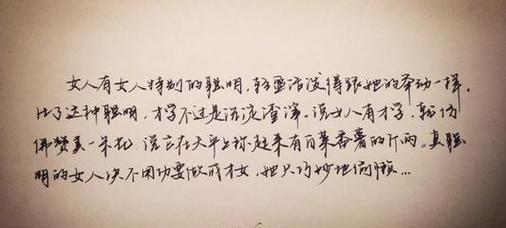 女人有女人特别的聪明，轻盈活泼得跟她的举动一样。
比了这种聪明，才学不过是沉淀渣滓。说女人有才学，就仿
佛赞美一朵花，说它在天平上称起来有白菜番薯的斤两。真聪
明的女人决不用功要做成才女，她只巧妙地偷懒…